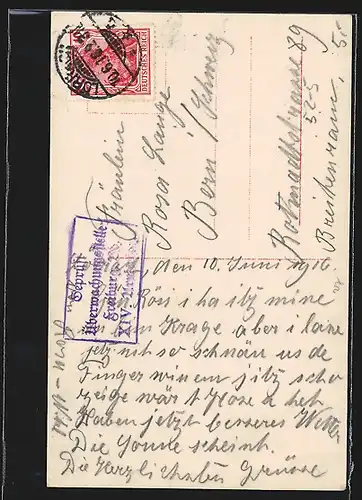 DEUTSCHES REICH
Fräulein
Rosa Lange
Bern / Schweiz
89
325
Breitenrain
Geprüft
Überwachungsstelle
XIV
den 10. Juni 1916.
Rösi i ha itz mine
Krage aber i lane
jetz nit so schnäu us de
Finger wi nem jitz scho
zeige wär t Hose a het
Haben jetzt besseres Wetter
Die Sonne scheint.
Die Herzlichsten Grüsse